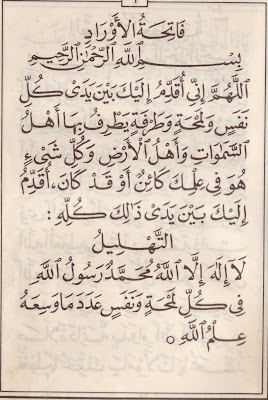 ١
فَاتِحَةُ الْأَوْرَادِ
بِسْمِ اللَّهِ الرَّحْمَٰنِ الرَّحِيمِ
اللَّهُمَّ إِنِّي أُقَدِّمُ إِلَيْكَ بَيْنَ يَدَيْ كُلِّ
نَفَسٍ وَلَمْحَةٍ وَطَرْفَةٍ يَطْرِفُ بِهَا أَهْلُ
السَّمٰوَاتِ وَأَهْلُ الْأَرْضِ وَكُلِّ شَيْءٍ
هُوَ فِي عِلْمِكَ كَائِنٌ أَوْ قَدْ كَانَ، أُقَدِّمُ
إِلَيْكَ بَيْنَ يَدَيْ ذَالِكَ كُلِّهِ :
التَّهْلِيلُ
لَا إِلَهَ إِلَّا اللَّهُ مُحَمَّدٌ رَسُولُ اللَّهِ
فِي كُلِّ لَمْحَةٍ وَنَفَسٍ عَدَدَ مَا وَسِعَهُ
عِلْمُ اللَّهِ ○